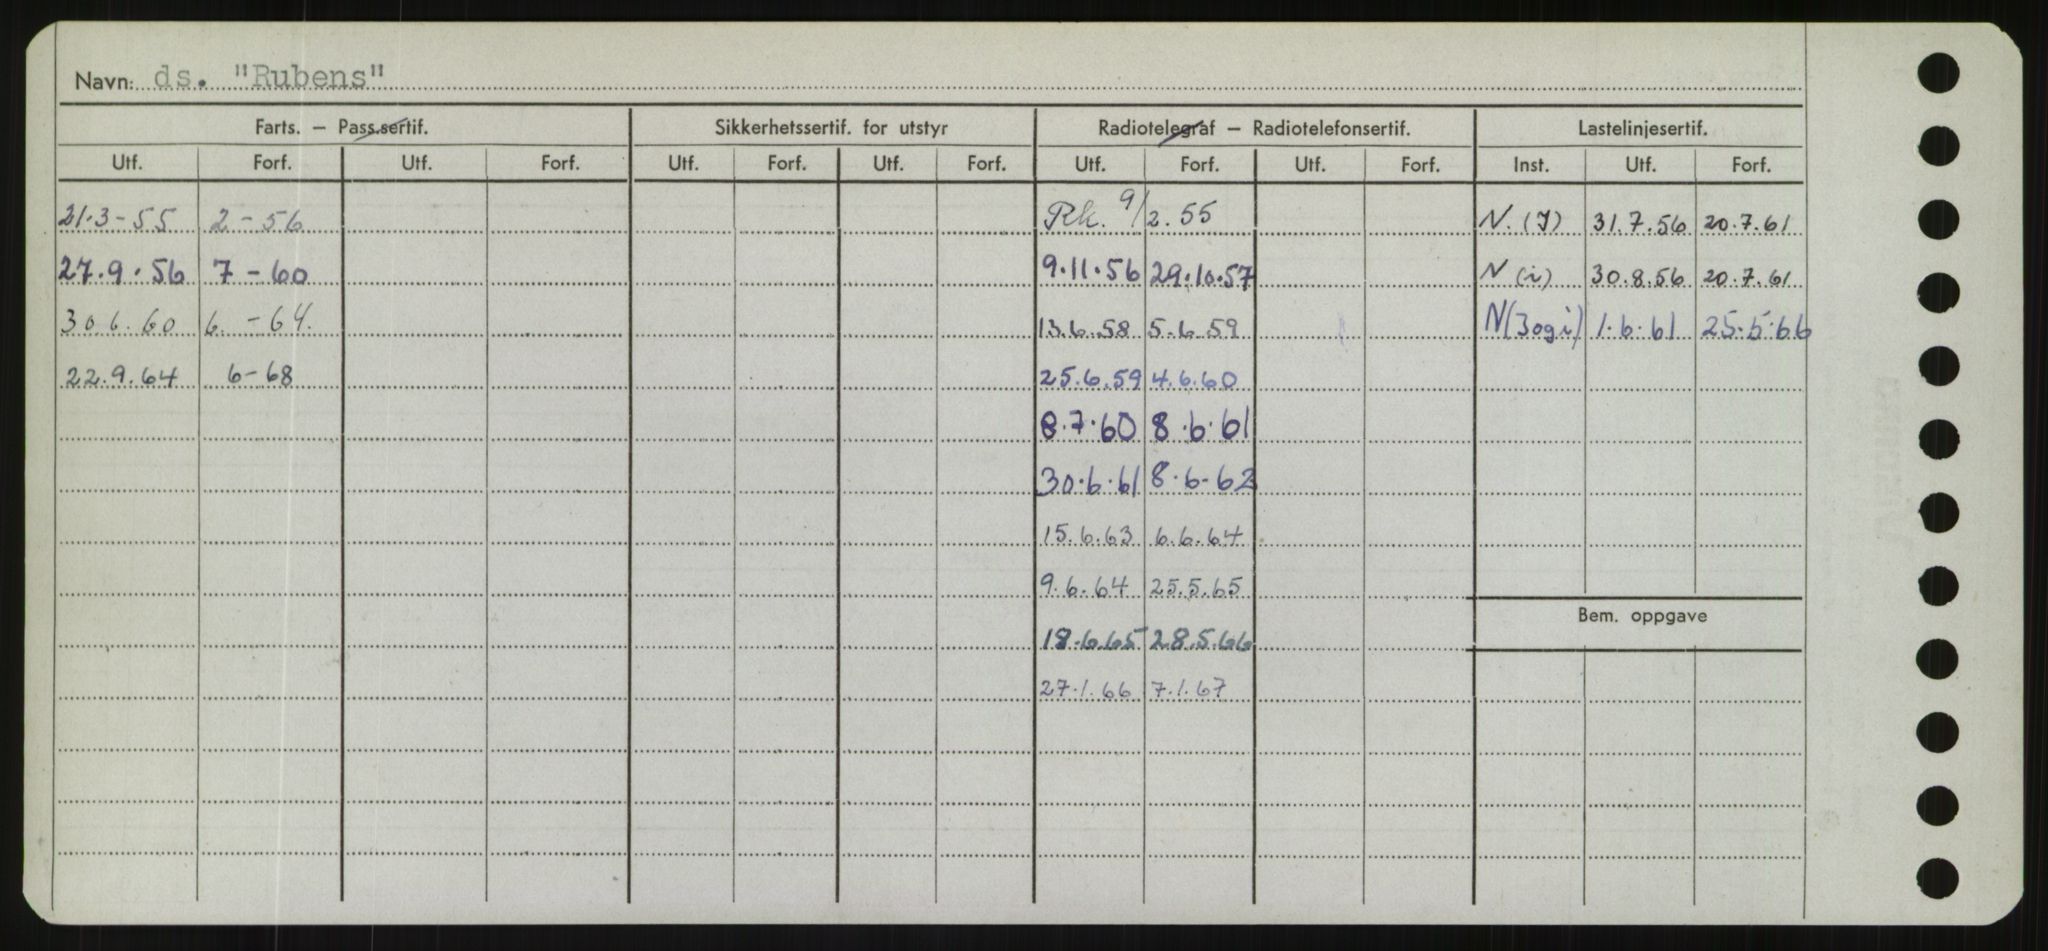 Navn: ds. "Rubens"
Farts. – Pass.sertif. Sikkerhetssertif. for utstyr Radiotelegraf – Radiotelefonsertif. Lastelinjesertif.
Utf. Forf. Utf. Forf. Utf. Forf. Utf. Forf. Utf. Forf. Utf. Forf. Inst. Utf. Forf.
21.3-55 2-56 Rk. 9/2.55 N.(J) 31.7.56 20.7.61
27.9.56 7-60 9.11.56 29.10.57 N(i) 30.8.56 20.7.61
30.6.60 6.-64. 13.6.58 5.6.59 N(J og i) 1.6.61 25.5.66
22.9.64 6-68 25.6.59 4.6.60
8.7.60 8.6.61
30.6.61 8.6-62
15.6.63 6.6.64
9.6.64 25.5.65
Bem. oppgave
18.6.65 28.5.66
27.1.66 7.1.67